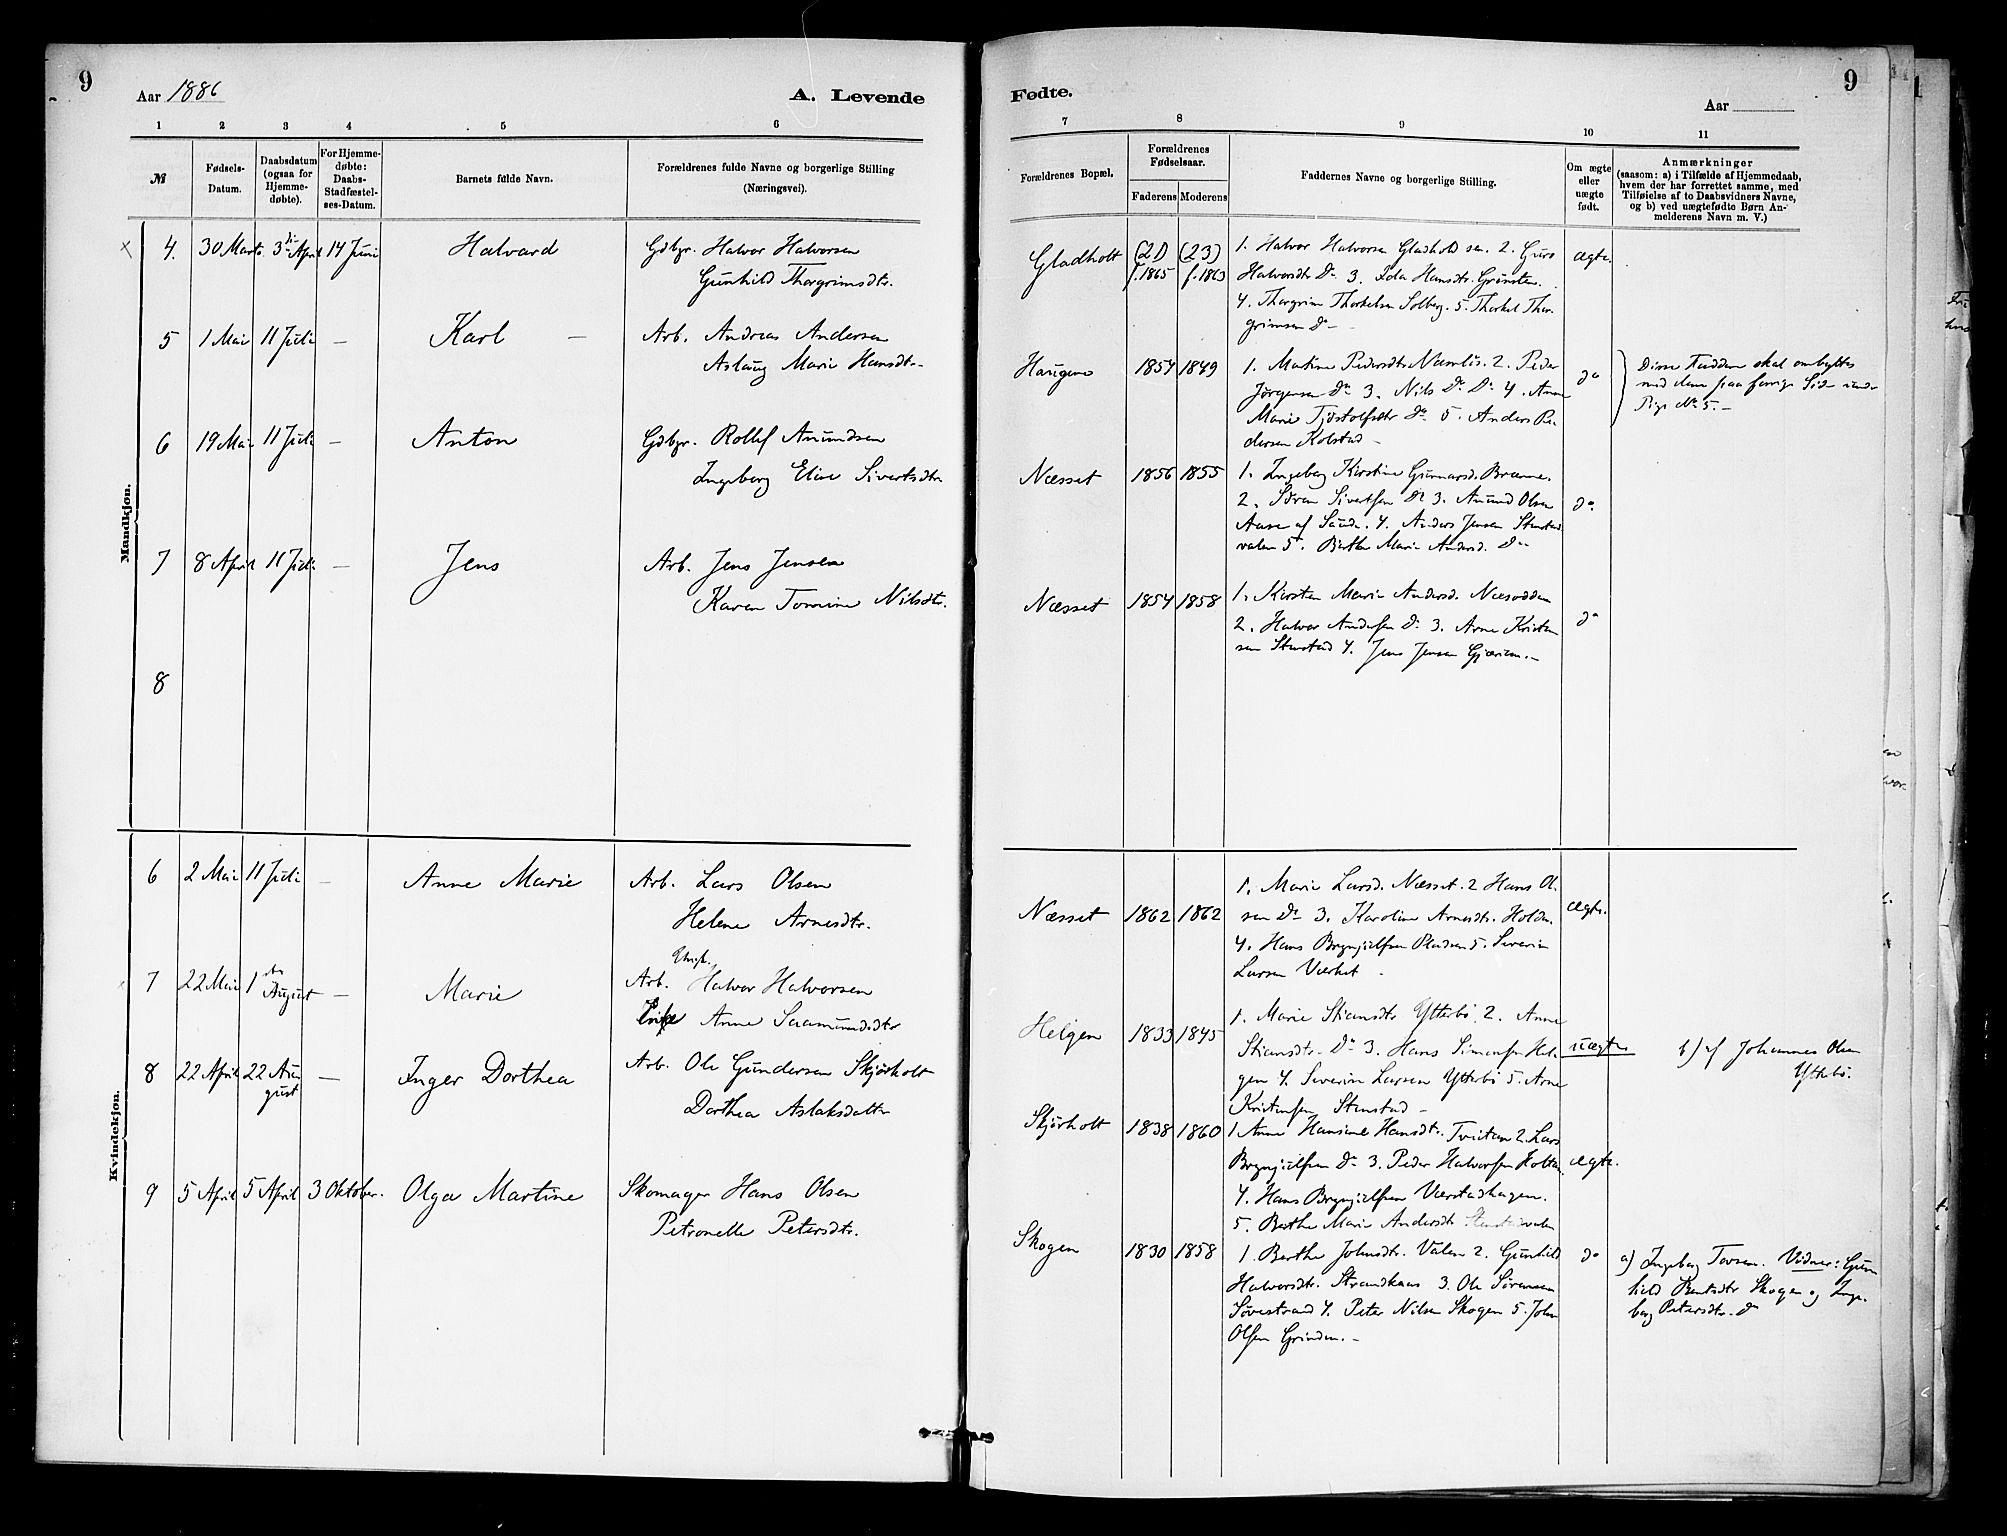 9
Aar 1886
A. Levende
1 2 3 4 5 6
№
Fødsels-
Datum.
Daabsdatum
(ogsaa for
Hjemme-
døbte).
For Hjemme-
døbte:
Daabs-
Stadfæstel-
ses-Datum.
Barnets fulde Navn.
Forældrenes fulde Navne og borgerlige Stilling
(Næringsvei).
Mandkjøn.
4. 30 Marts. 3die April 14 Juni Halvard Gdbgr. Halvor Halvorsen
Gunhild Thorgrimsdtr.
5 1 Mai 11 Juli — Karl — Arb. Andreas Andersen
Aslaug Marie Hansdtr.
6 19 Mai 11 Juli — Anton Gdbgr. Rollef Amundsen
Ingeborg Elise Sivertsdtr.
7 8 April 11 Juli — Jens Arb. Jens Jensen
Karen Tomine Nilsdtr.
8
Kvindekjøn.
6 2 Mai 11 Juli — Anne Marie Arb. Lars Olsen
Helene Arnesdtr.
7 22 Mai 1ste August — Marie Arb. Halvor Halvorsen
Anne Saamundsdtr
8 22 April 22 Au-
gust — Inger Dorthea Arb. Ole Gundersen Skjørholt
Dorthea Aslaksdatter
9 5 April 5 April 3 Oktober. Olga Martine Skomager Hans Olsen
Petronelle Petersdtr.
Fødte.
9
Aar
7 8 9 10 11
Forældrenes Bopæl.
Forældrenes
Fødselsaar.
Faderens Moderens
Faddernes Navne og borgerlige Stilling.
Om ægte
eller
uægte
født.
Anmærkninger
(saasom: a) i Tilfælde af Hjemmedaab,
hvem der har forrettet samme, med
Tilføielse af to Daabsvidners Navne,
og b) ved uægtefødte Børn An-
melderens Navn m. V.)
Gladholt (21) (23) 1. Halvor Halvorsen Gladholt sen. 2. Guro ægte.
f. 1865 f. 1863 Halvorsdtr Do 3. Ida Hansdtr. Grønsten.
4. Thorgrim Thorkelsen Solberg. 5. Thorkel Thor-
grimsen Do —
Haugene 1854 1849 1. Martine Pedersdtr Næmlis. 2. Peder do
Jørgensen Do 3. Nils Do Do 4. Anne
Marie Tjostolfsdtr Do 5. Anders Pe-
dersen Kolstad —
Disse Faddere skal ombyttes
med dem paa forrige Side under
Pige No 5. —
Næsset 1856 1855 1. Ingeborg Kirstine Gunnarsd. Bræmne.
2. Søren Sivertsen Do 3. Amund Olsen do.
Aase af Saude. 4. Anders Jensen Stenstad-
valen 5. Berthe Marie Andersd. Do
Næsset 1854 1858 1. Kirsten Marie Andersd. Næsodden do
2. Halvor Andersen Do 3. Arne Kristen-
sen Stenstad 4. Jens Jensen Gjærum. —
Næsset 1862 1862 1. Marie Larsd. Næsset. 2 Hans Ol- ægte.
sen Do 3. Karoline Arnesdtr. Holden.
4. Hans Brynjulfsen Pladsen 5. Severin
Larsen Værket —
Helgen 1833 1845 1. Marie Stiansdtr Ytterbø. 2. Anne
Stiansdtr. Do 3. Hans Simonsen Hel- uægte
gen 4. Severin Larsen Ytterbø 5. Arne
Kristensen Stenstad —
b) af Johannes Olsen
Ytterbø.
Skjørholt 1838 1860 1 Anne Hansine Hansdtr. Tveitan 2. Lars
Brynjulfsen Do 3. Peder Halvorsen Holtan ægte.
4. Hans Brynjulfsen Værstadhagen.
5. Berthe Marie Andersdtr Stenstadvalen
Skogen 1830 1858 1. Berthe Johnsdtr. Valen 2. Gunhild do
Halvorsdtr. Strandkaas 3. Ole Sørensen
Sovestrand 4. Peter Nilsen Skogen 5. John
Olsen Grinden. —
a) Ingeborg Tovsen. Vidner: Gun-
hild Bentsdtr Skogen og Inge-
borg Petersdtr. Do